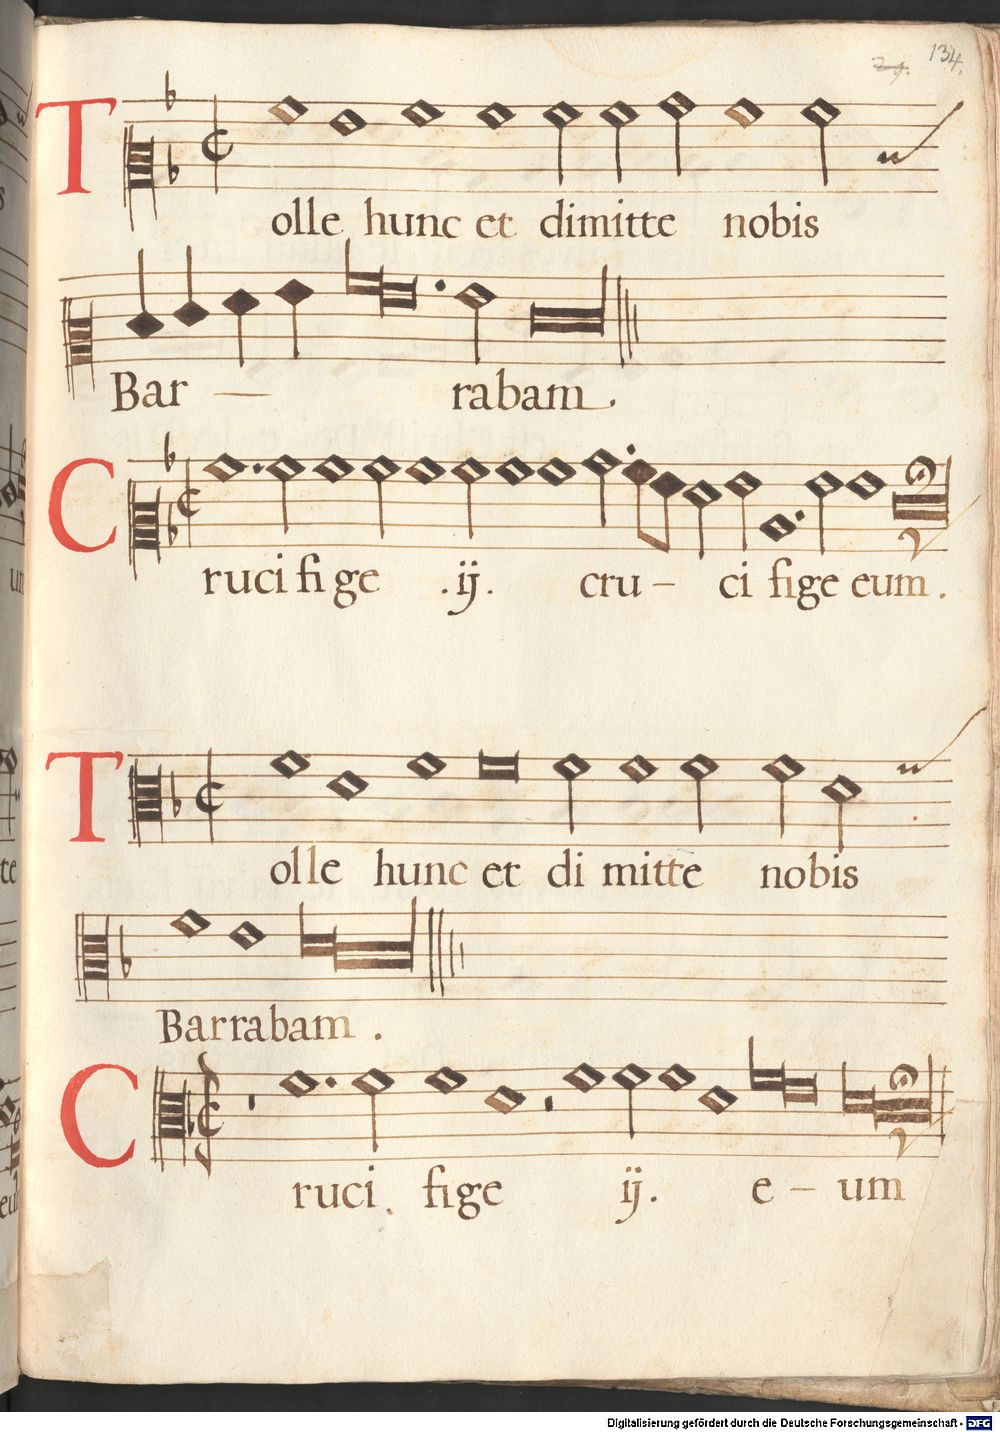 29. 134.
Tolle hunc et dimitte nobis
Bar — rabam.
Crucifige .ij. cru – ci fige eum.
Tolle hunc et di mitte nobis
Barrabam.
Cruci fige ij. e – um
Digitalisierung gefördert durch die Deutsche Forschungsgemeinschaft - DFG